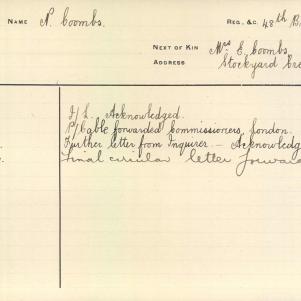 NAME N. Coombs. REG. &C. 48th B
NEXT OF KIN Mrs E. Coombs.
ADDRESS Stockyard Cre
I/L. Acknowledged.
P/Cable forwarded Commissioners, London.
Further letter from Inquirer – Acknowledg
Final circular letter forwar